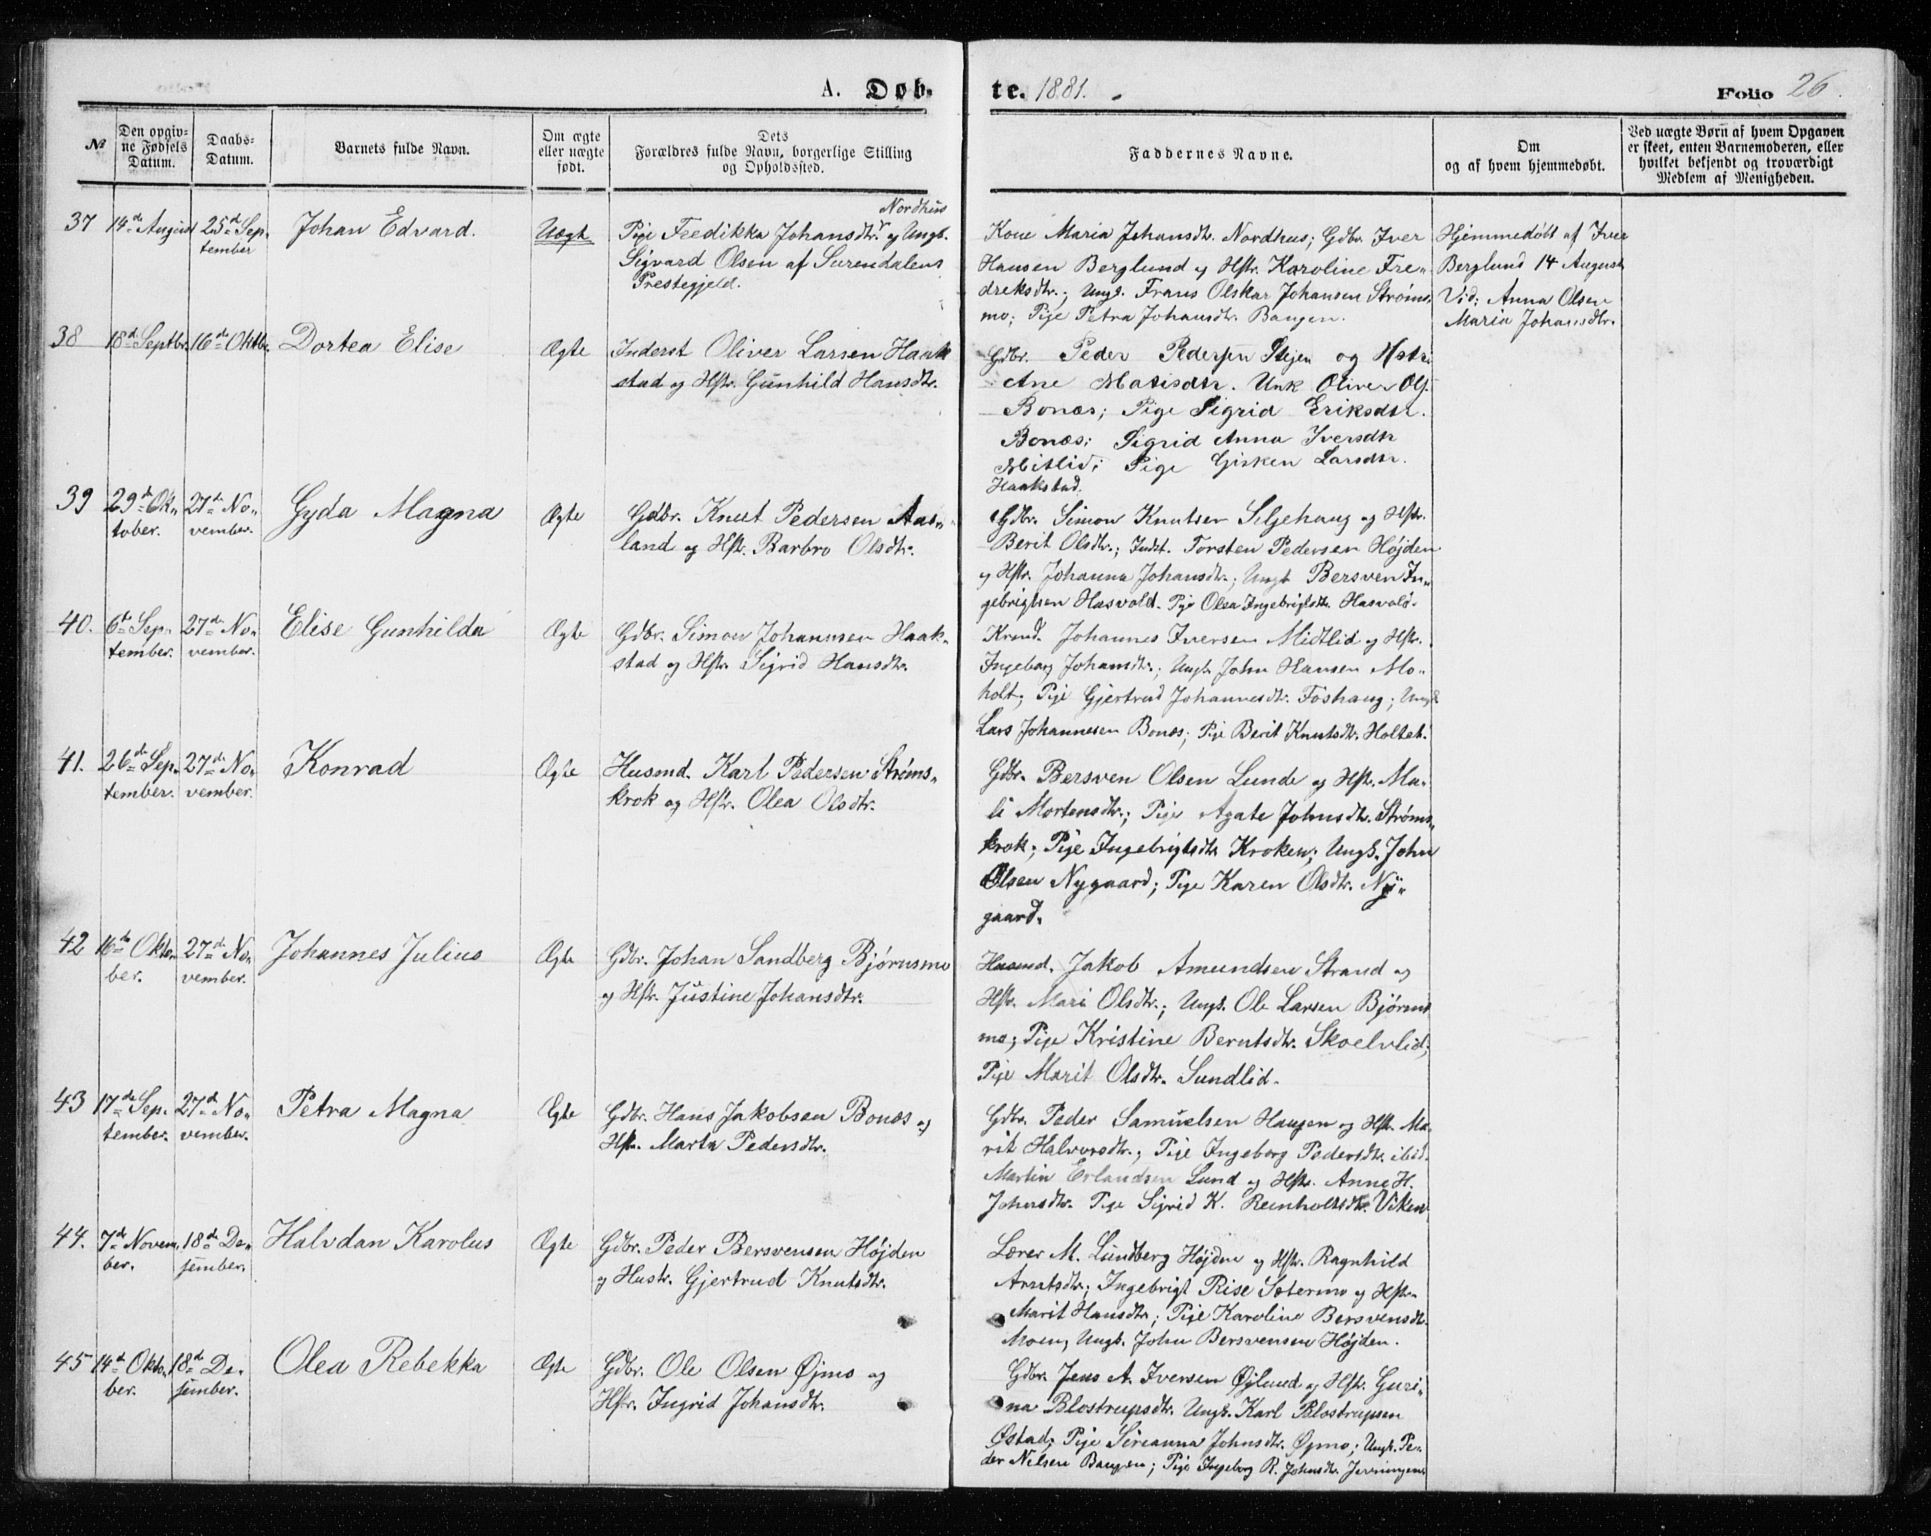 A. Døb- te. 1881. Folio 26.
№
Den opgiv-
ne Fødsels
Datum.
Daabs-
Datum.
Barnets fulde Navn.
Om ægte
eller uægte
født.
Dets
Forældres fulde Navn, borgerlige Stilling
og Opholdssted.
Faddernes Navne.
Om
og af hvem hjemmedøbt.
Ved uægte Børn af hvem Opgaven
er skeet, enten Barnemoderen, eller
hvilket bekjendt og troværdigt
Medlem af Menigheden.
37
14de August
25de Sep-
tember
Johan Edvard.
Uægt
Nordhus
Pige Fredikka Johansdtr. og Ungk.
Sigvard Olsen af Surendalens
Prestegjeld.
Kone Maria Johansdtr. Nordhus; Gdbr. Iver
Hansen Berglund og Hstr. Karoline Fre-
dreksdtr.; Ungk. Frans Olskar Johansen Strøms-
mo; Pige Petra Johansdtr. Baugen.
Hjemmedøbt af Iver
Berglund 14 August
Vid: Anna Olsen
Maria Johansdtr.
38
18de Septbr.
16de Oktbr.
Dortea Elise
Ægte
Inderst Oliver Larsen Haak
stad og Hstr. Gunhild Hansdtr.
Gdbr. Peder Pedersen Stejen og Hstr.
Ane Matisdtr. Unk Oliver Ols.
Bonæs; Pige Sigrid Eriksdtr.
Bonæs; Sigrid Anna Iversdtr
Mitlid; Pige Gisken Larsdtr.
Haakstad.
39
29de Ok-
tober.
27de No-
vember.
Gyda Magna
Ægte
Gdbr. Knut Pedersen Aas-
land og Hstr. Barbro Olsdtr.
Gdbr. Simon Knutsen Siljehaug og Hstr.
Berit Olsdtr.; Indst. Torsten Pedersen Højden
og Hstr. Johanna Johansdtr.; Ungk Bersven In-
gebrigtsen Hasvold. Pige Olea Ingebrigtsdtr. Hasvold.
40.
6te Sep-
tember.
27de No-
vember.
Elise Gunhilda
Ægte
Gdbr. Simon Johannsen Haak-
stad og Hstr. Sigrid Hansdtr.
Johannes Iversen Midtlid og Hstr.
Ingeborg Johansdtr.; Ungk John Hansen Mo-
holt; Pige Gjertrud Johannesdtr. Foshaug; Ungk
Lars Johannesen Bonæs; Pige Berit Knutsdtr. Holtet.
41.
26de Sep-
tember.
27de No-
vember.
Konrad
Ægte
Husmd. Karl Pedersen Strøms-
krok og Hstr. Olea Olsdtr.
Gdbr. Bersven Olsen Lunde og Hstr. Ma-
li Mortensdtr.; Pige Agate Johnsdtr. Strøms-
krok; Pige Ingebrigtsdtr Kroken; Ungk. John
Olsen Nygaard; Pige Karen Olsdtr. Ny-
gaard.
42
16de Okto-
ber.
27de No-
vember.
Johannes Julius
Ægte
Gdbr. Johan Sandberg Bjørnsmo
og Hstr. Justine Johansdtr.
Husmd. Jakob Amundsen Strand og
Hstr. Mari Olsdtr.; Ungk. Ole Larsen Bjørns
mo; Pige Kristine Berntsdtr. Skoelvlid;
Pige Marit Olsdtr. Sundlid.
43
17de Sep-
tember.
27de No-
vember.
Petra Magna
Ægte
Gdbr. Hans Jakobsen Bonæs og
Hstr. Marta Pedersdtr.
Gdbr. Peder Samuelsen Haugen og Hstr. Ma-
rit Halvorsdtr.; Pige Ingeborg Pedersdtr. ibid.
Martin Erlandsen Lund og Hstr. Anne H.
Johnsdtr. Pige Sigrid K. Reinholtsdtr. Viken
44.
7de Novem-
ber.
18de De-
sember.
Halvdan Karolus
Ægte
Gdbr. Peder Bersvensen Højden
og Hustr. Gjertrud Knutsdtr.
Lærer M. Lundberg Højden og Hstr. Ragnhild
Arntsdtr.; Ingebrigt Rise Sætermo og Hstr.
Marit Hansdtr; Pige Karoline Bersvensdtr.
Moen, Ungk. John Bersvensen Højden.
45
14de Okto-
ber.
18de De-
sember.
Olea Rebekka
Ægte
Gdbr. Ole Olsen Øjmo og
Hstr. Ingrid Johansdtr.
Gdbr. Jens A. Iversen Øjlund og Hstr. Guri-
na Blostrupsdtr. Ungk. Karl Blostrupsen
Østad; Pige Sirianna Johnsdtr. Øjmo; Ungk. Pe-
der Nilsen Baugen; Pige Ingeborg R. Johnsdtr.